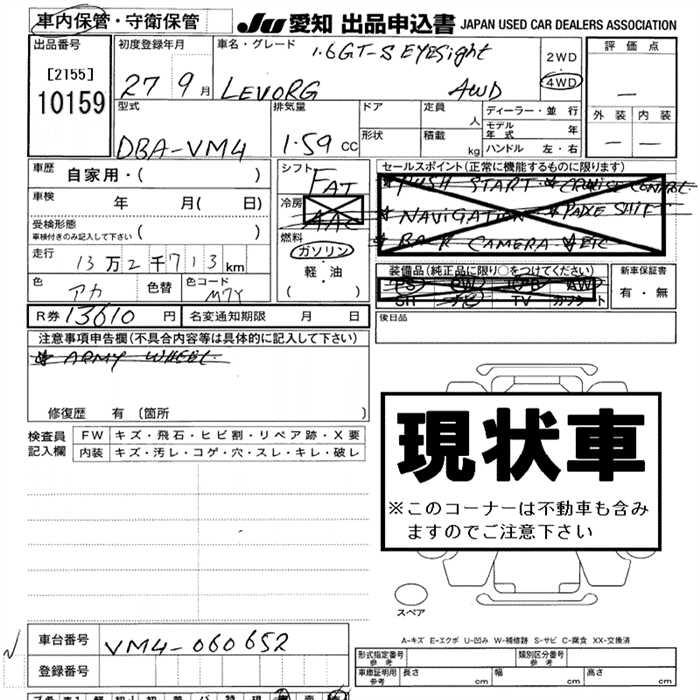 車内保管・守衛保管
JU 愛知 出品申込書 JAPAN USED CAR DEALERS ASSOCIATION
出品番号 初度登録年月 車名・グレード 1.6GT-S EYESight 2WD 評価点
[2155] 10159 27 9月 LEVORG AWD 4WD —
型式 排気量 ドア 定員 人 ディーラー・並行 外装 内装
DBA-VM4 1.59cc 形状 積載 kg モデル年式 年 — —
ハンドル 左・右
車歴 自家用・( ) シフト FAT セールスポイント(正常に機能するものに限ります)
車検 年 月( 日) 冷房 AAC PUSH START CRUISE CONTROL
受検形態 車検付きのみ記入して下さい ( ) NAVIGATION PADLE SHIFT
燃料 ガソリン BACK CAMERA ETC
走行 13万2千713km 軽・油 ( ) 装備品(純正品に限り○をつけてください) 新車保証書
色 アカ 色替 色コード M7Y PS PW AW 有・無
SH TV
R券 13610円 名変通知期限 月 日 後日品
注意事項申告欄(不具合内容等は具体的に記入して下さい)
ARMY WHEEL
修復歴 有 (箇所 )
検査員記入欄 FW キズ・飛石・ヒビ割・リペア跡・X要
内装 キズ・汚レ・コゲ・穴・スレ・キレ・破レ
現状車
※このコーナーは不動車も含み
ますのでご注意下さい
スペア
A-キズ E-エクボ U-凹み W-補修跡 S-サビ C-腐食 XX-交換済
車台番号 VM4-060652 形式指定番号 参考 類別区分番号 参考
登録番号 車庫証明用 参考 長さ cm 幅 cm 高さ cm